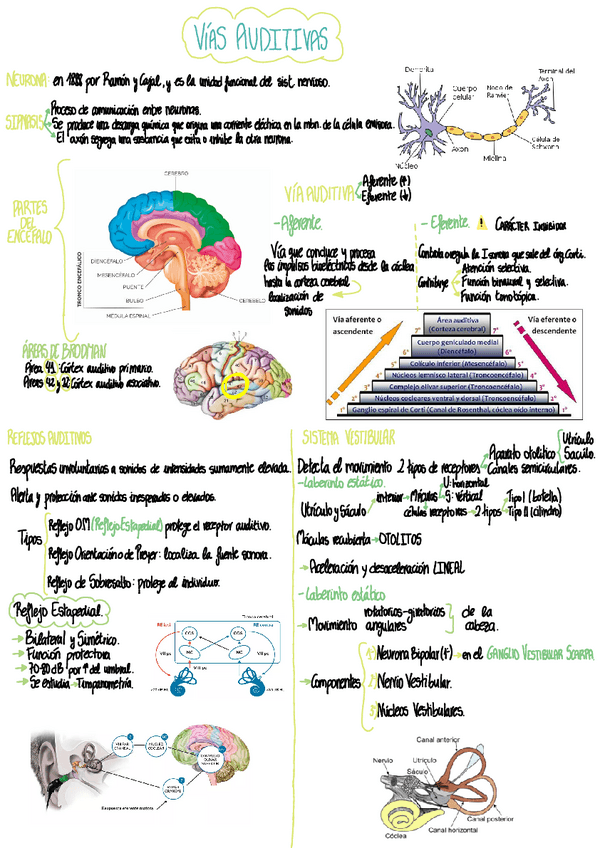 VÍAS AUDITIVAS
NEURONA: en 1888 por Ramón y Cajal, y es la unidad funcional del sist. nervioso.
SINAPSIS
Proceso de comunicación entre neuronas.
Se produce una descarga química que origina una corriente eléctrica en la mbn. de la célula emisora.
El axón segrega una sustancia que exita o inhibe la otra neurona.
Dendrita
Cuerpo celular
Nodo de Ranvier
Terminal del Axon
Núcleo
Axon
Mielina
Célula de Schwann
PARTES DEL ENCÉFALO
CEREBRO
TRONCO ENCEFÁLICO
DIENCÉFALO
MESENCÉFALO
PUENTE
BULBO
MÉDULA ESPINAL
CEREBELO
VÍA AUDITIVA
Aferente (↑)
Eferente (↓)
- Aferente.
Vía que conduce y procesa
los impulsos bioeléctricos desde la cóclea
hasta la corteza cerebral
localización de
sonidos
- Eferente. ! CARÁCTER INHIBIDOR
Controla o regula la I sonora que sale del órg. Corti.
Contribuye
Atención selectiva.
Función binaural y selectiva.
Función tonotópica.
Vía aferente o ascendente
Vía eferente o descendente
7° Área auditiva (Corteza cerebral) 1°
6° Cuerpo geniculado medial (Diencéfalo)
5° Colículo inferior (Mesencéfalo)
4° Núcleos lemnisco lateral (Troncoencéfalo)
3° Complejo olivar superior (Troncoencéfalo)
2° Núcleos cocleares ventral y dorsal (Troncoencéfalo)
1° Ganglio espiral de Corti (Canal de Rosenthal, cóclea oído interno)
ÁREAS DE BRODMAN
Área 41: Córtex auditivo primario.
Áreas 42 y 22: Córtex auditivo asociativo.
REFLEJOS AUDITIVOS
Respuestas involuntarias a sonidos de intensidades sumamente elevada.
Alerta y protección ante sonidos inesperados o elevados.
Tipos
Reflejo OM (Reflejo Estapedial) protege el receptor auditivo.
Reflejo Orientación o de Preyer: localiza la fuente sonora.
Reflejo de Sobresalto: protege al individuo.
Reflejo Estapedial.
→ Bilateral y Simétrico.
→ Función protectora
→ 70-80 dB por ↑ del umbral.
→ Se estudia → Timpanometría.
COS
COS
NC
NC
VIII pc
VIII pc
SISTEMA VESTIBULAR
Detecta el movimiento 2 tipos de receptores
Aparato otolítico
Utrículo
Sáculo.
Canales semicirculares.
- Laberinto estático.
Utrículo y Sáculo
interior → Máculas
U: horizontal
S: vertical
células receptoras → 2 tipos
Tipo I (botella)
Tipo II (cilindro)
Máculas recubierta → OTOLITOS
→ Aceleración y desaceleración LINEAL
- Laberinto estático
→ Movimiento
rotatorios-giratorios
angulares
de la
cabeza.
→ Componentes
1° Neurona Bipolar (1ª) → en el GANGLIO VESTIBULAR SCARPA
2° Nervio Vestibular.
3° Núcleos Vestibulares.
Canal anterior
Nervio
Utrículo
Sáculo
Canal posterior
Canal horizontal
Cóclea